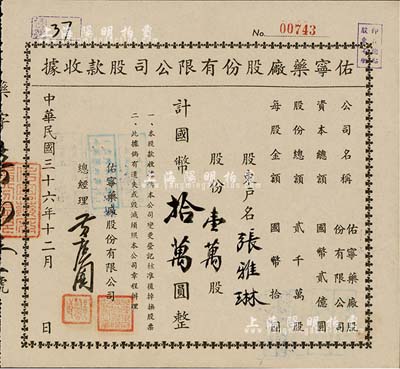 37
No. 00743
佑寧藥廠股份有限公司股款收據
公司名稱 佑寧藥廠股份有限公司
資本總額 國幣貳億圓
股份總額 貳千萬股
每股金額 國幣拾圓
股東戶名 張雅琳
股份壹萬股
計國幣拾萬圓整
一、本股款收據俟本公司變更登記核准後掉換股票
二、此據倘有遺失或毀滅須照本公司章程辦理
佑寧藥廠股份有限公司
總經理
中華民國三十六年十二月 日
上海陽明拍賣